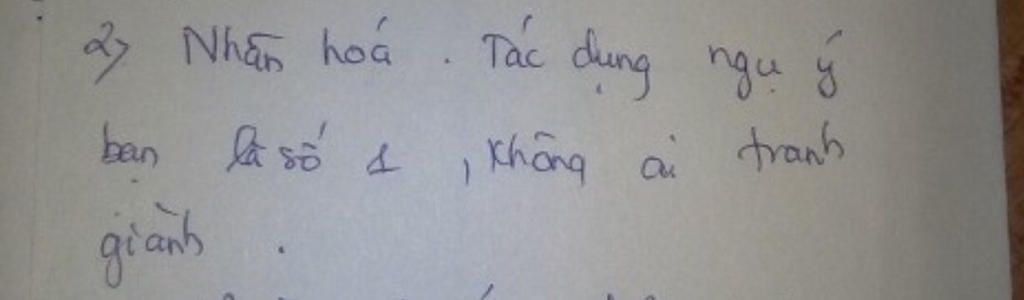 2) Nhân hoá . Tác dụng ngụ ý
bạn là số 1 , không ai tranh
giành .